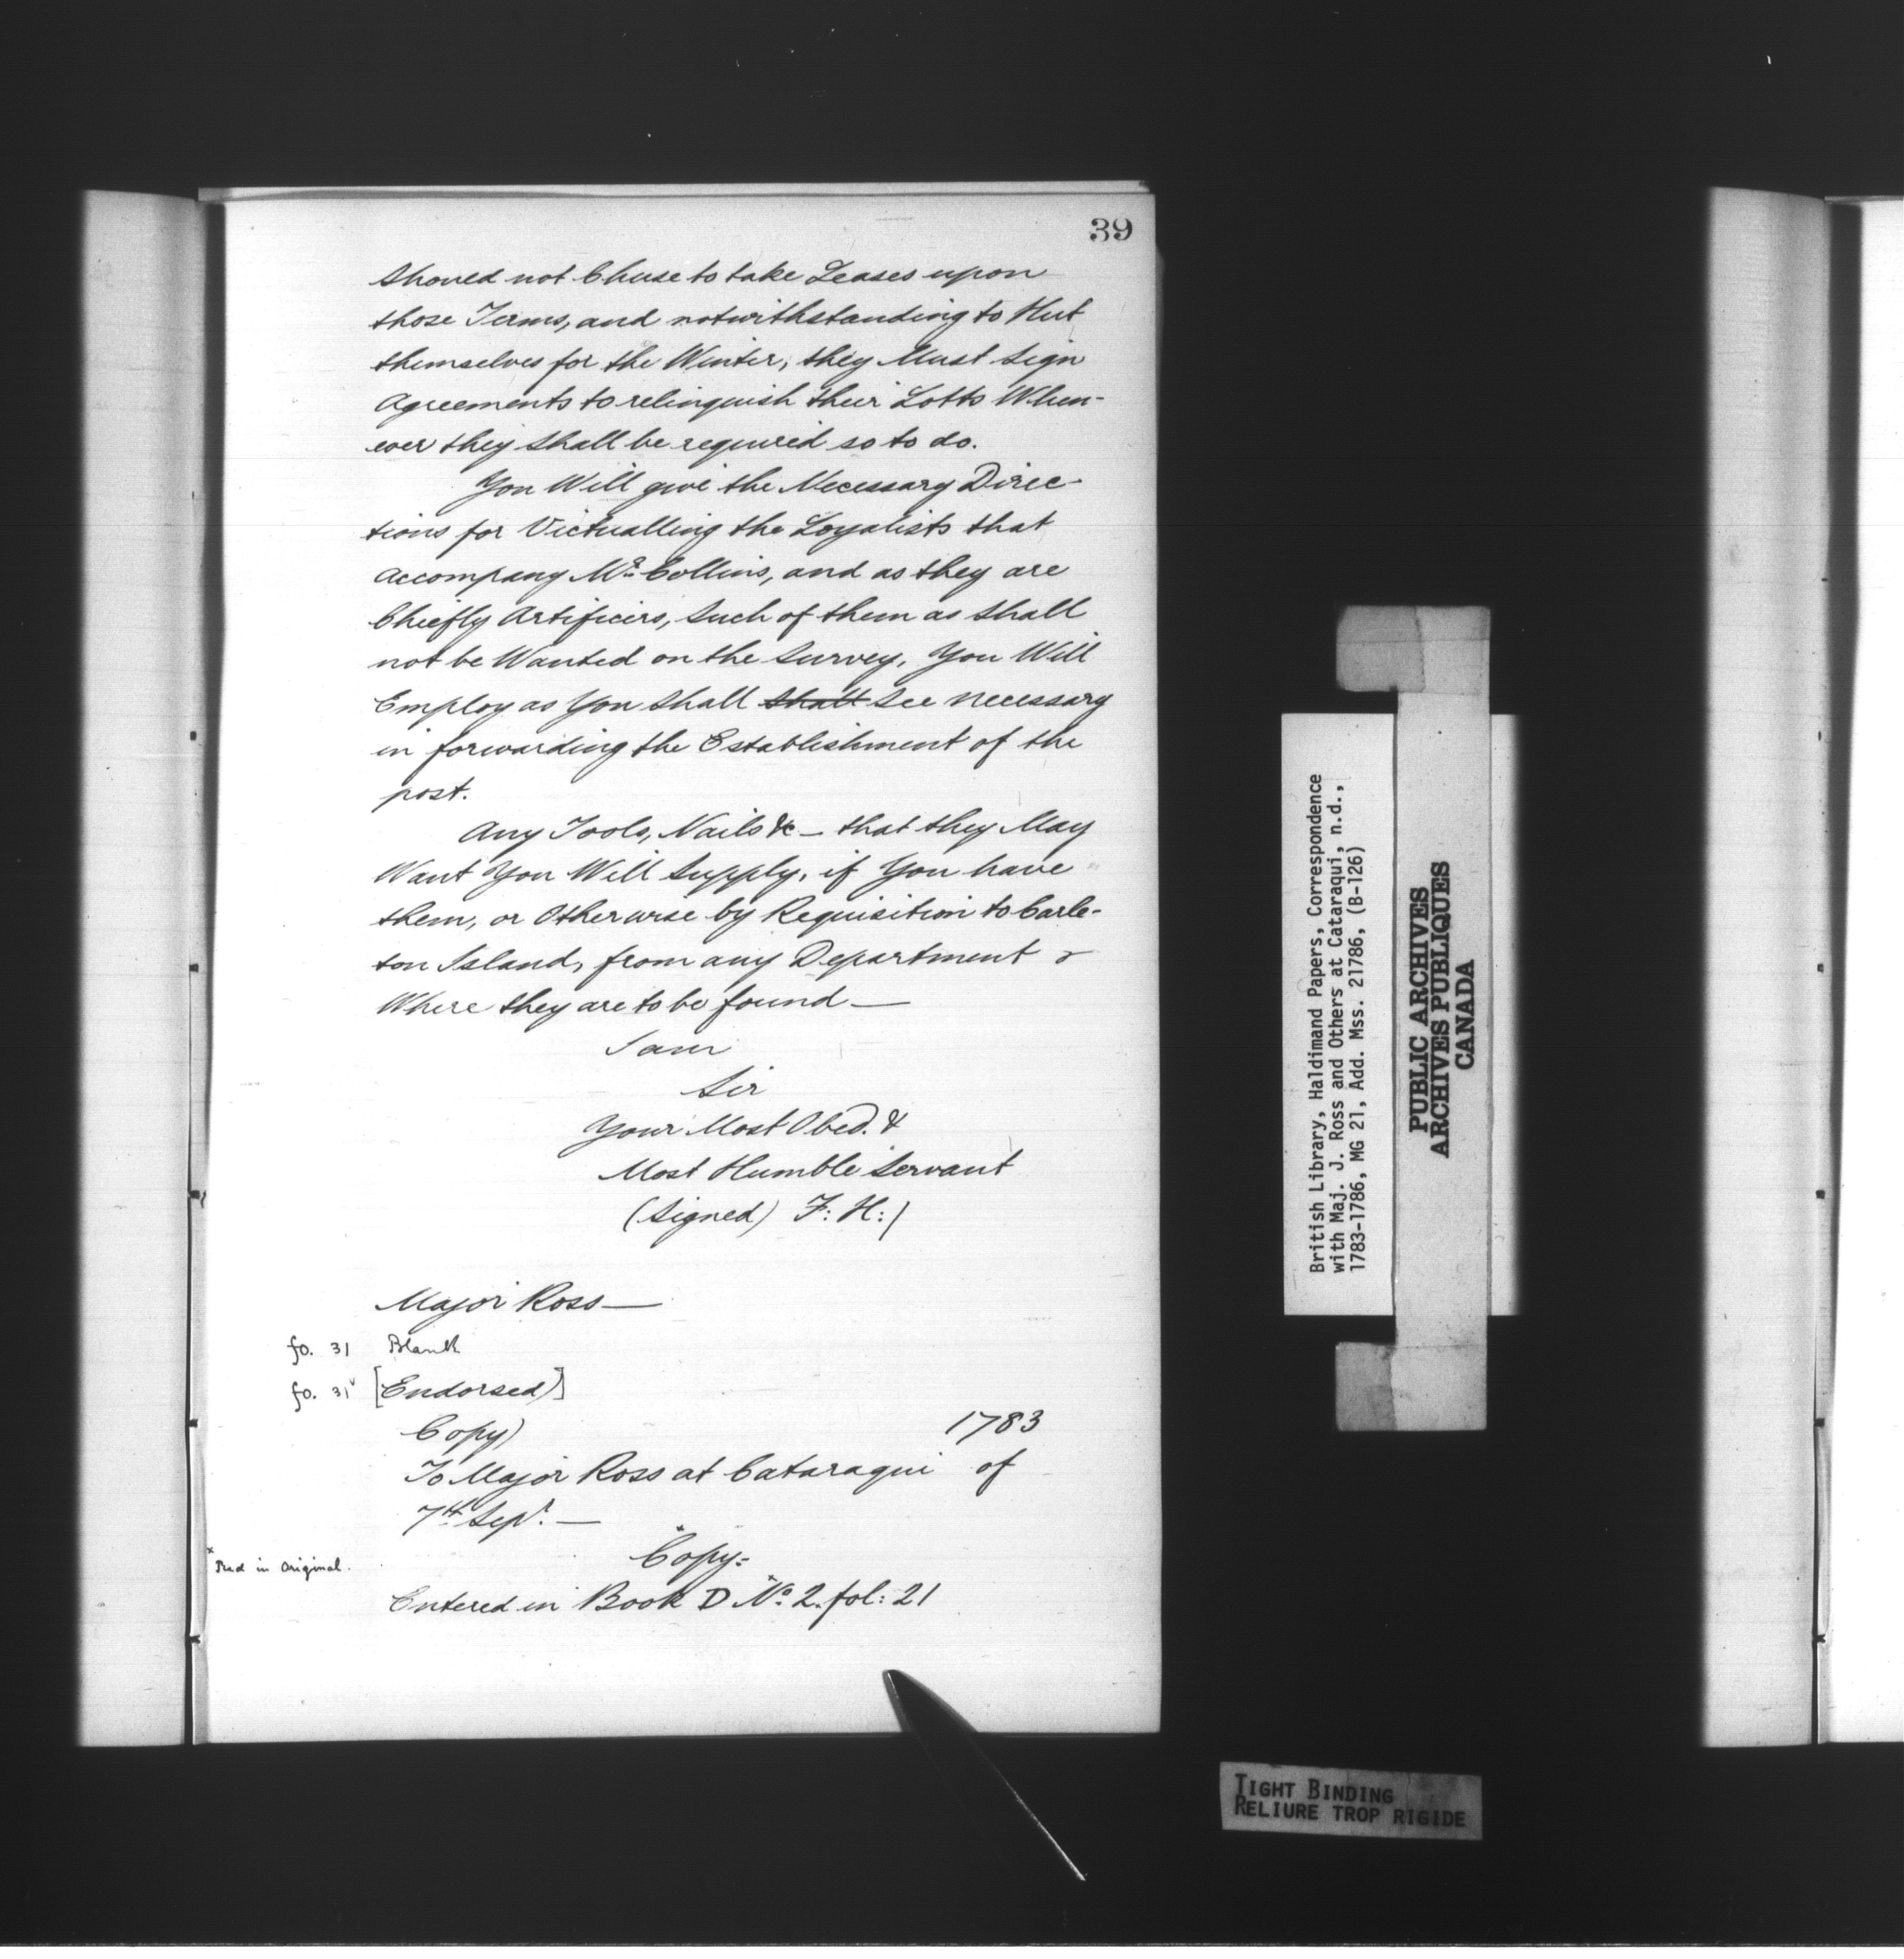 39
Should not Chuse to take Leases upon
those Terms, and notwithstanding to Hut
themselves for the Winter, they Must Sign
Agreements to relinquish their Lotts When-
ever they Shall be required so to do.
You Will give the Necessary Direc-
tions for Victualling the Loyalists that
accompany Mr. Collins, and as they are
Chiefly Artificers, Such of them as Shall
not be Wanted on the Survey, You Will
Employ as You Shall Shall See necessary
in forwarding the Establishment of the
post.
Any Tools, Nails &c — that they May
Want You Will Supply, if You have
them, or Otherwise by Requisition to Carle-
ton Island, from any Department &
Where they are to be found —
I am
Sir
Your Most Obed. &
Most Humble Servant
(Signed) F: H:)
Major Ross —
fo. 31 Blank
fo. 31v [Endorsed)]
Copy) 1783
To Major Ross at Cataraqui of
7th Sepr. —
x Copy=
x Red in Original.
Entered in Book D No. 2. fol: 21
British Library, Haldimand Papers, Correspondence
with Maj. J. Ross and Others at Cataraqui, n.d.,
1783-1786, MG 21, Add. Mss. 21786, (B-126)
PUBLIC ARCHIVES
ARCHIVES PUBLIQUES
CANADA
TIGHT BINDING
RELIURE TROP RIGIDE